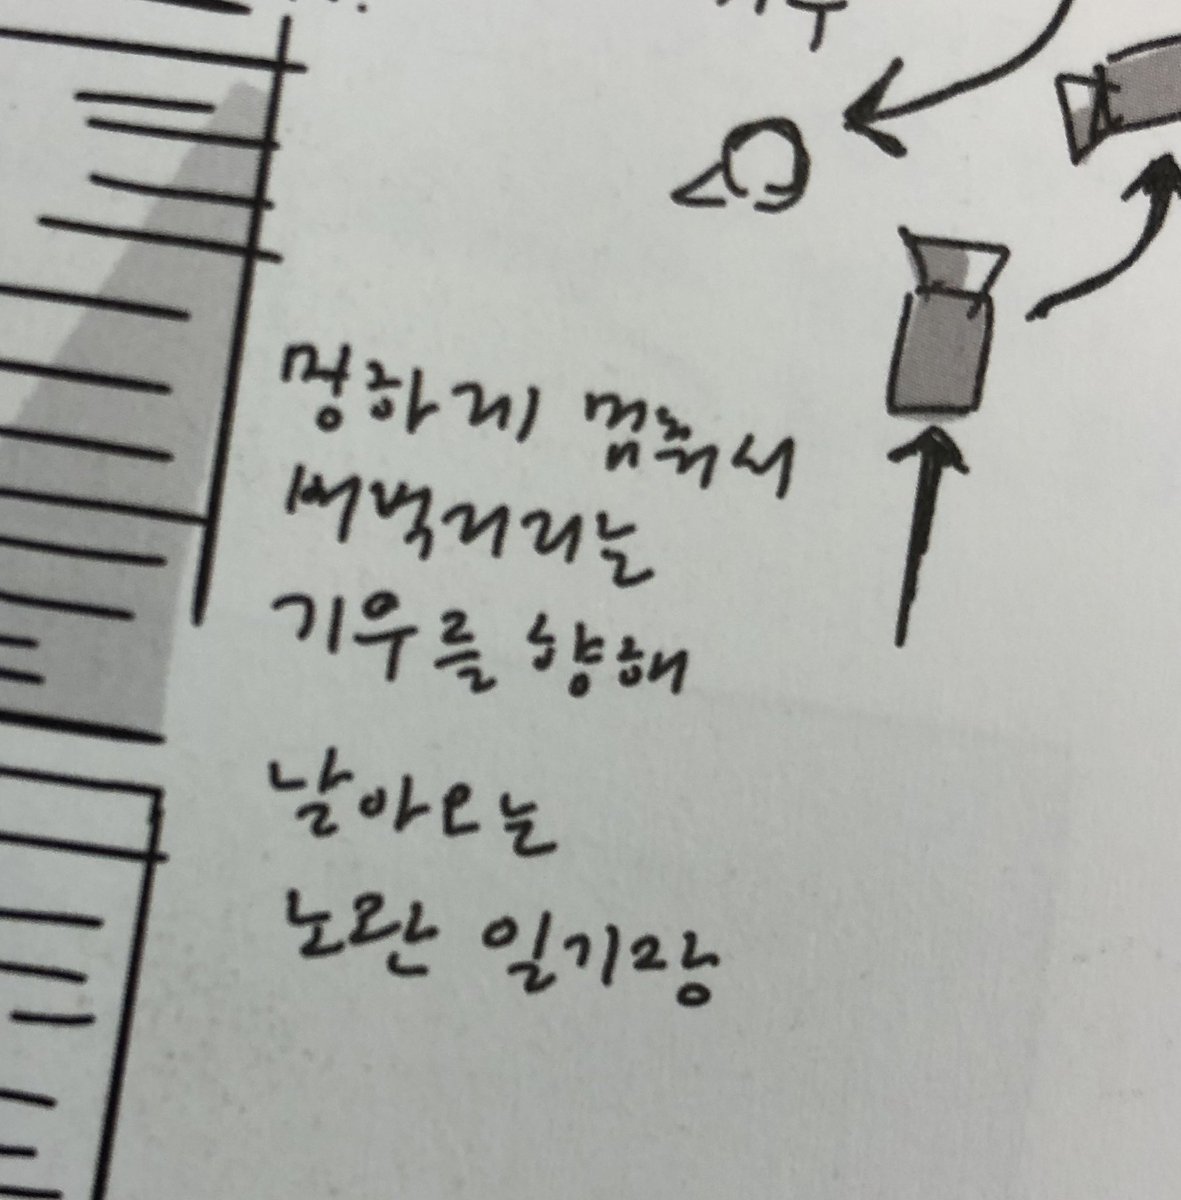 멍하게 멈춰서
뻐벅거리는
기우를 향해
날아오는
노란 일기장